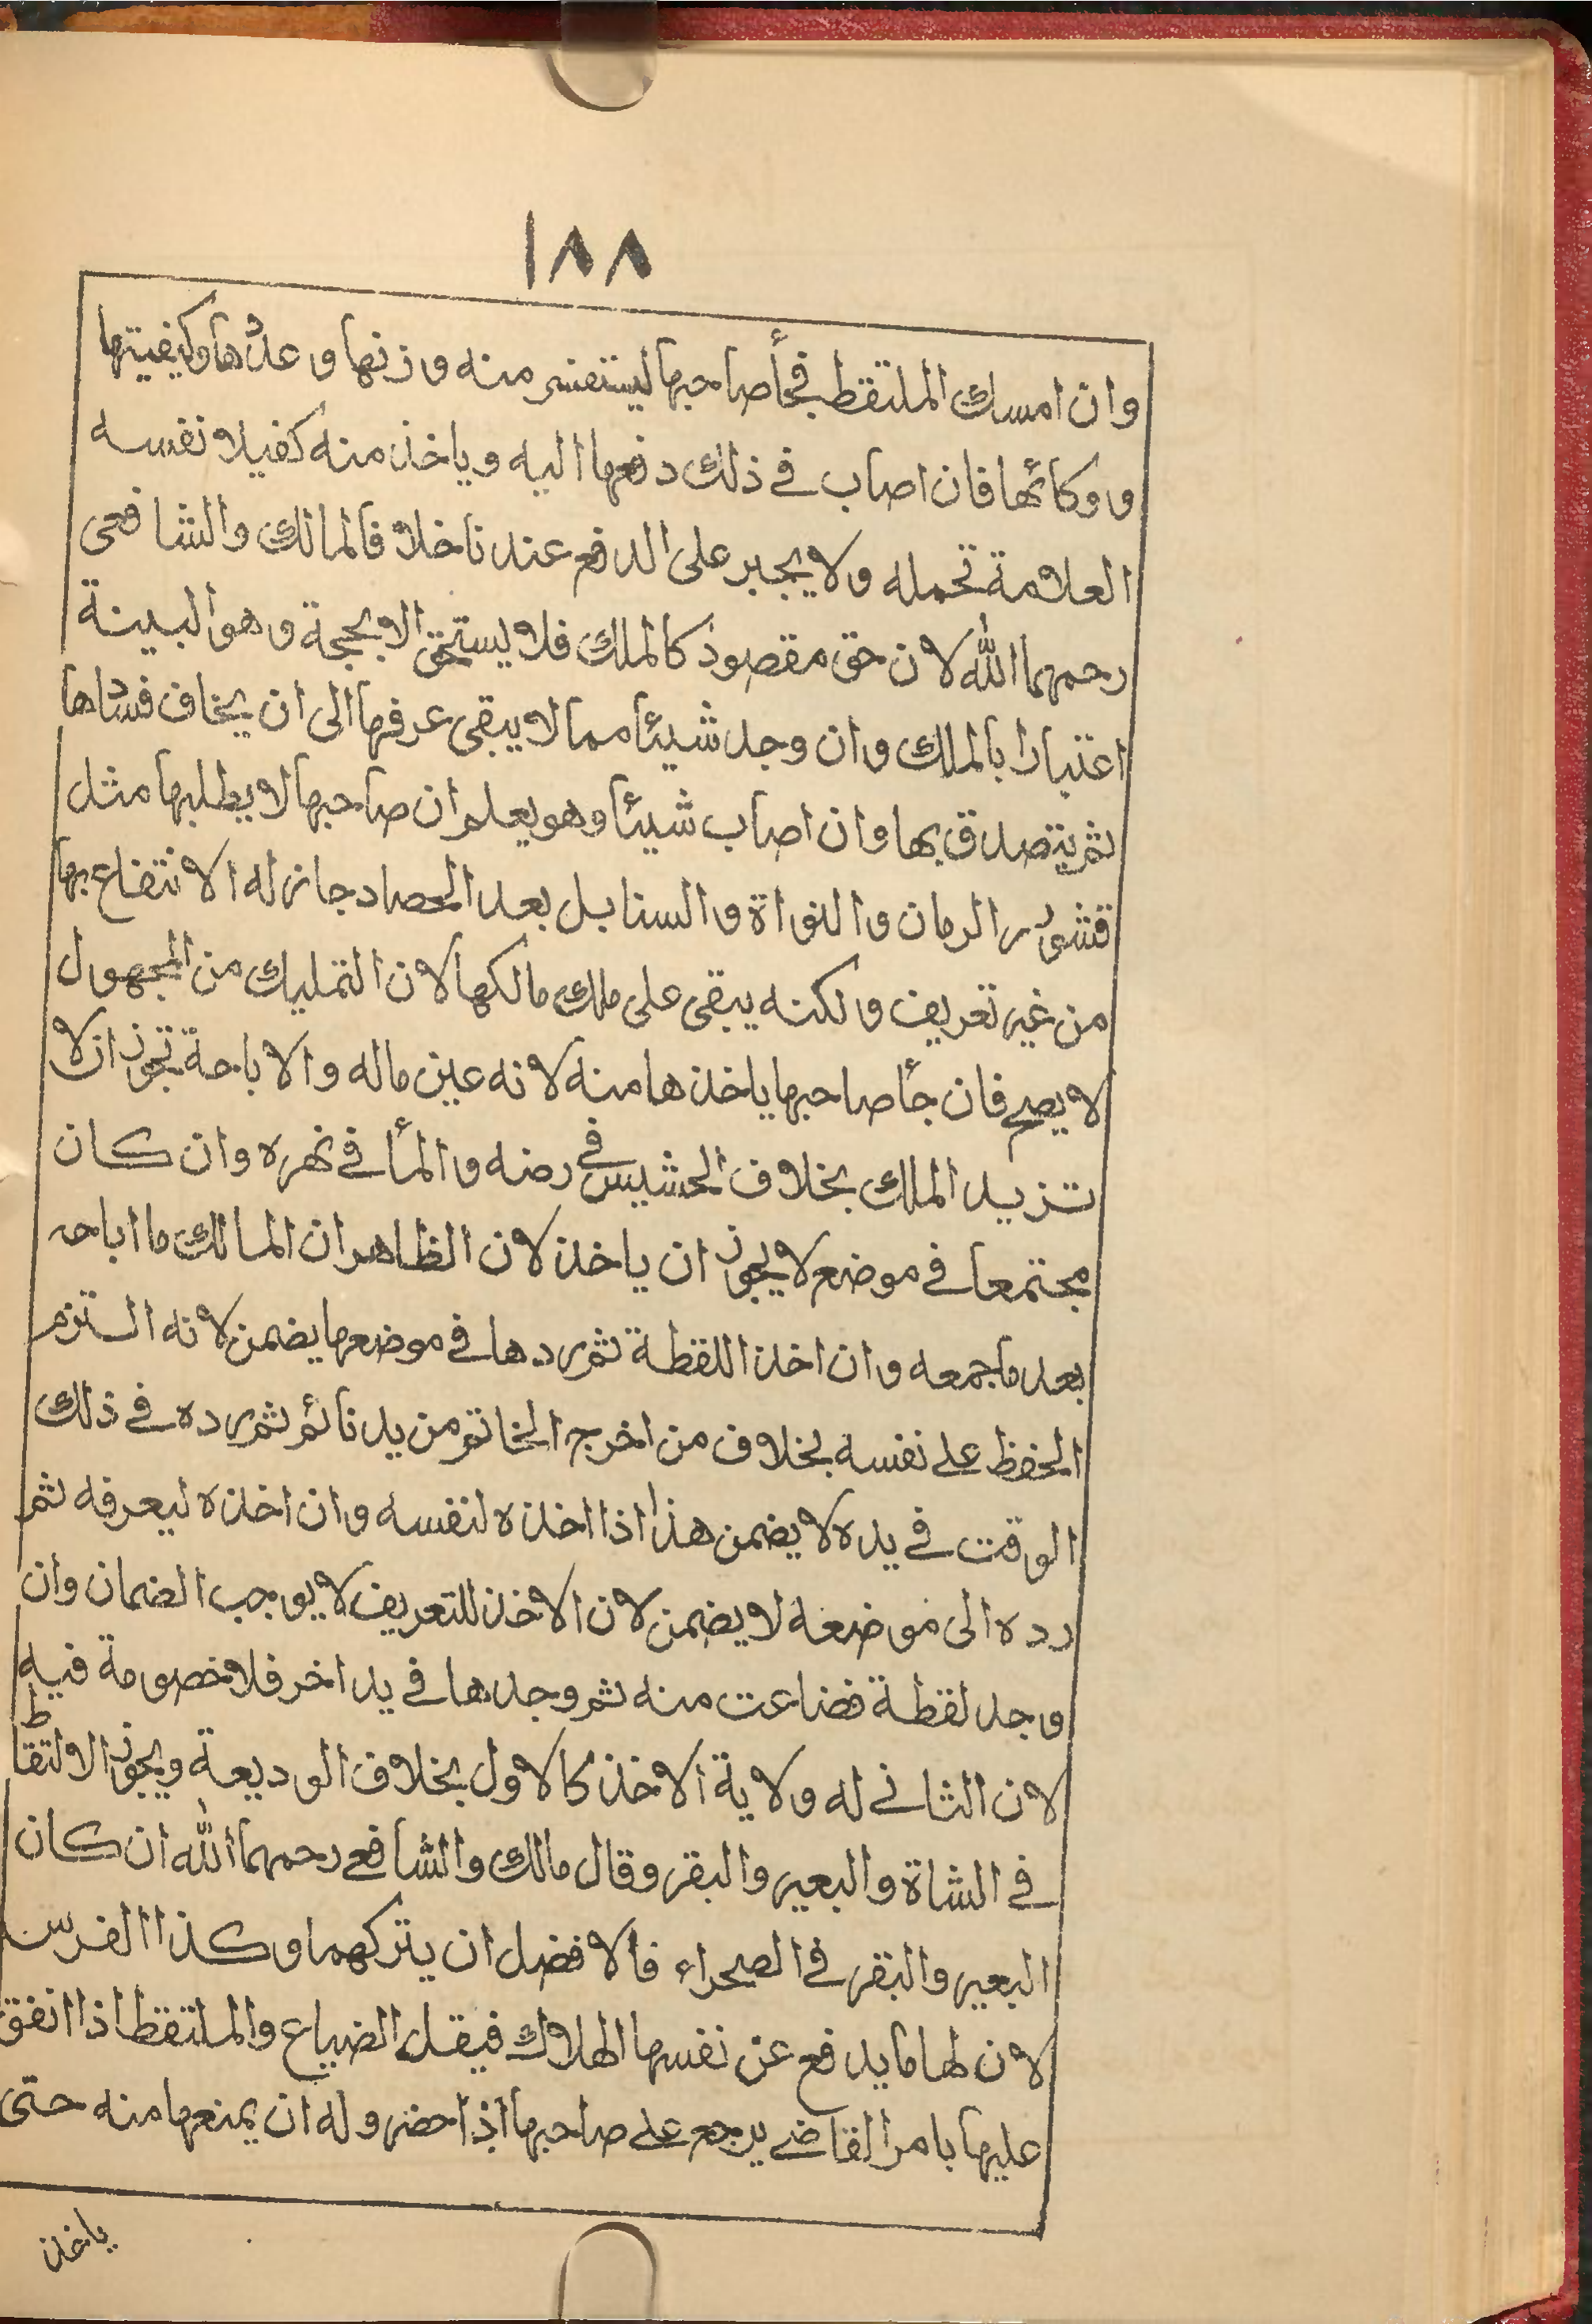 ١٨٨
وان امسك الملتقط فجأ صاحبها ليستفسر منه وزنها وعددها وكيفيتها
ووكائها فان اصاب في ذلك دفعها اليه وياخذ منه كفيلا نفسه
العلامة تحمله ولا يجبر على الدفع عندنا خلافا لمالك والشافعى
رحمهما الله لان حق مقصود كالملك فلا يستحق الا بحجة وهو البينة
اعتبارا بالملك وان وجد شيئا مما لا يبقى عرفها الى ان يخاف فسادها
ثم يتصدق بها وان اصاب شيئا وهو يعلم ان صاحبها لا يطلبها مثل
قشور الرمان والنواة والسنابل بعد الحصاد جاز له الانتفاع بها
من غير تعريف ولكنه يبقى على ملك مالكها لان التمليك من المجهول
لا يصح فان جأ صاحبها ياخذها منه لانه عين ماله والاباحة تجوز ان لا
تزيد الملك بخلاف الحشيس في رضه والمأ في نهره وان كان
مجتمعا في موضع لا يجوز ان ياخذ لان الظاهر ان المالك ما اباحه
بعد ما جمعه وان اخذ اللقطة ثم ردها في موضعها يضمن لانه التزم
الحفظ على نفسه بخلاف من اخرج الخاتم من يد نائم ثم رده في ذلك
الوقت في يده لا يضمن هذا اذا اخذه لنفسه وان اخذه ليعرفه ثم
رده الى موضعه لا يضمن لان الاخذ للتعريف لا يوجب الضمان وان
وجد لقطة فضاعت منه ثم وجدها في يد اخر فلا خصومة فيه
لان الثاني له ولاية الاخذ كالاول بخلاف الوديعة ويجوز الالتقاط
في الشاة والبعير والبقر وقال مالك والشافع رحمهما الله ان كان
البعير والبقر في الصحراء فالافضل ان يتركهما وكذا الفرس
لان لها ما يدفع عن نفسها الهلاك فيقل الضياع والملتقط اذا انفق
عليها بامر القاضي يرجع على صاحبها اذا حضر وله ان يمنعها منه حتى
ياخذ